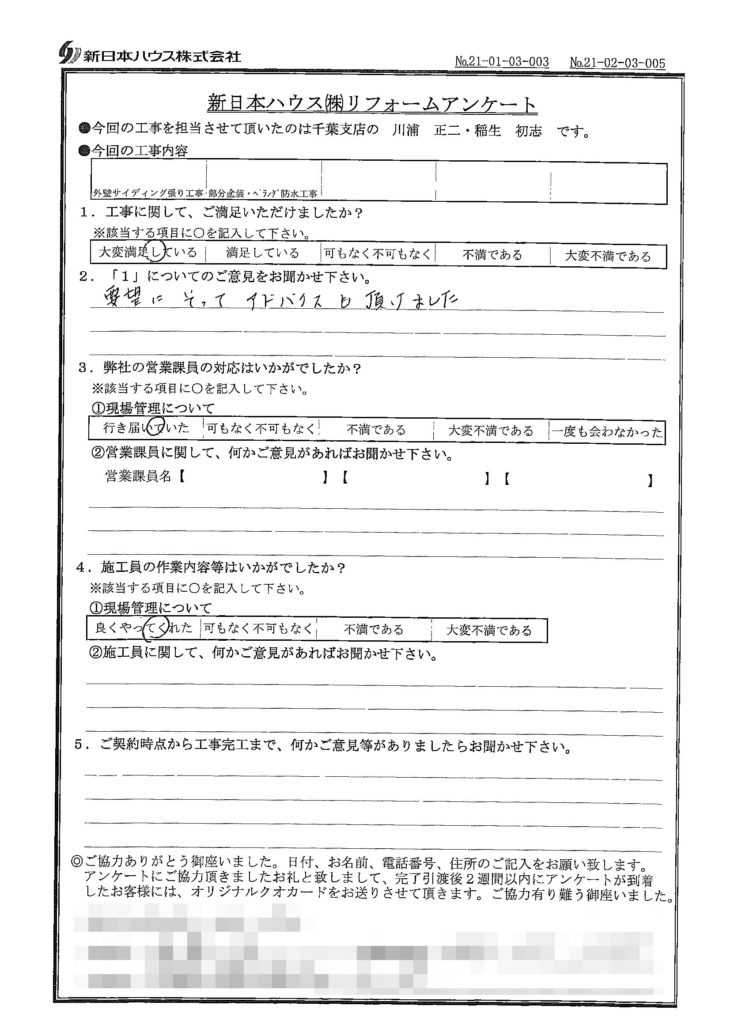 新日本ハウス株式会社
No.21-01-03-003 No.21-02-03-005
新日本ハウス㈱リフォームアンケート
●今回の工事を担当させて頂いたのは千葉支店の 川浦 正二・稲生 初志 です。
●今回の工事内容
外壁サイディング張り工事・部分塗装・ベランダ防水工事
1．工事に関して、ご満足いただけましたか？
※該当する項目に○を記入して下さい。
大変満足している 満足している 可もなく不可もなく 不満である 大変不満である
2．「1」についてのご意見をお聞かせ下さい。
要望に そって アドバイスも 頂けました
3．弊社の営業課員の対応はいかがでしたか？
※該当する項目に○を記入して下さい。
①現場管理について
行き届いていた 可もなく不可もなく 不満である 大変不満である 一度も会わなかった
②営業課員に関して、何かご意見があればお聞かせ下さい。
営業課員名【 】【 】【 】
4．施工員の作業内容等はいかがでしたか？
※該当する項目に○を記入して下さい。
①現場管理について
良くやってくれた 可もなく不可もなく 不満である 大変不満である
②施工員に関して、何かご意見があればお聞かせ下さい。
5．ご契約時点から工事完工まで、何かご意見等がありましたらお聞かせ下さい。
◎ご協力ありがとう御座いました。日付、お名前、電話番号、住所のご記入をお願い致します。
アンケートにご協力頂きましたお礼と致しまして、完了引渡後2週間以内にアンケートが到着
したお客様には、オリジナルクオカードをお送りさせて頂きます。ご協力有り難う御座いました。